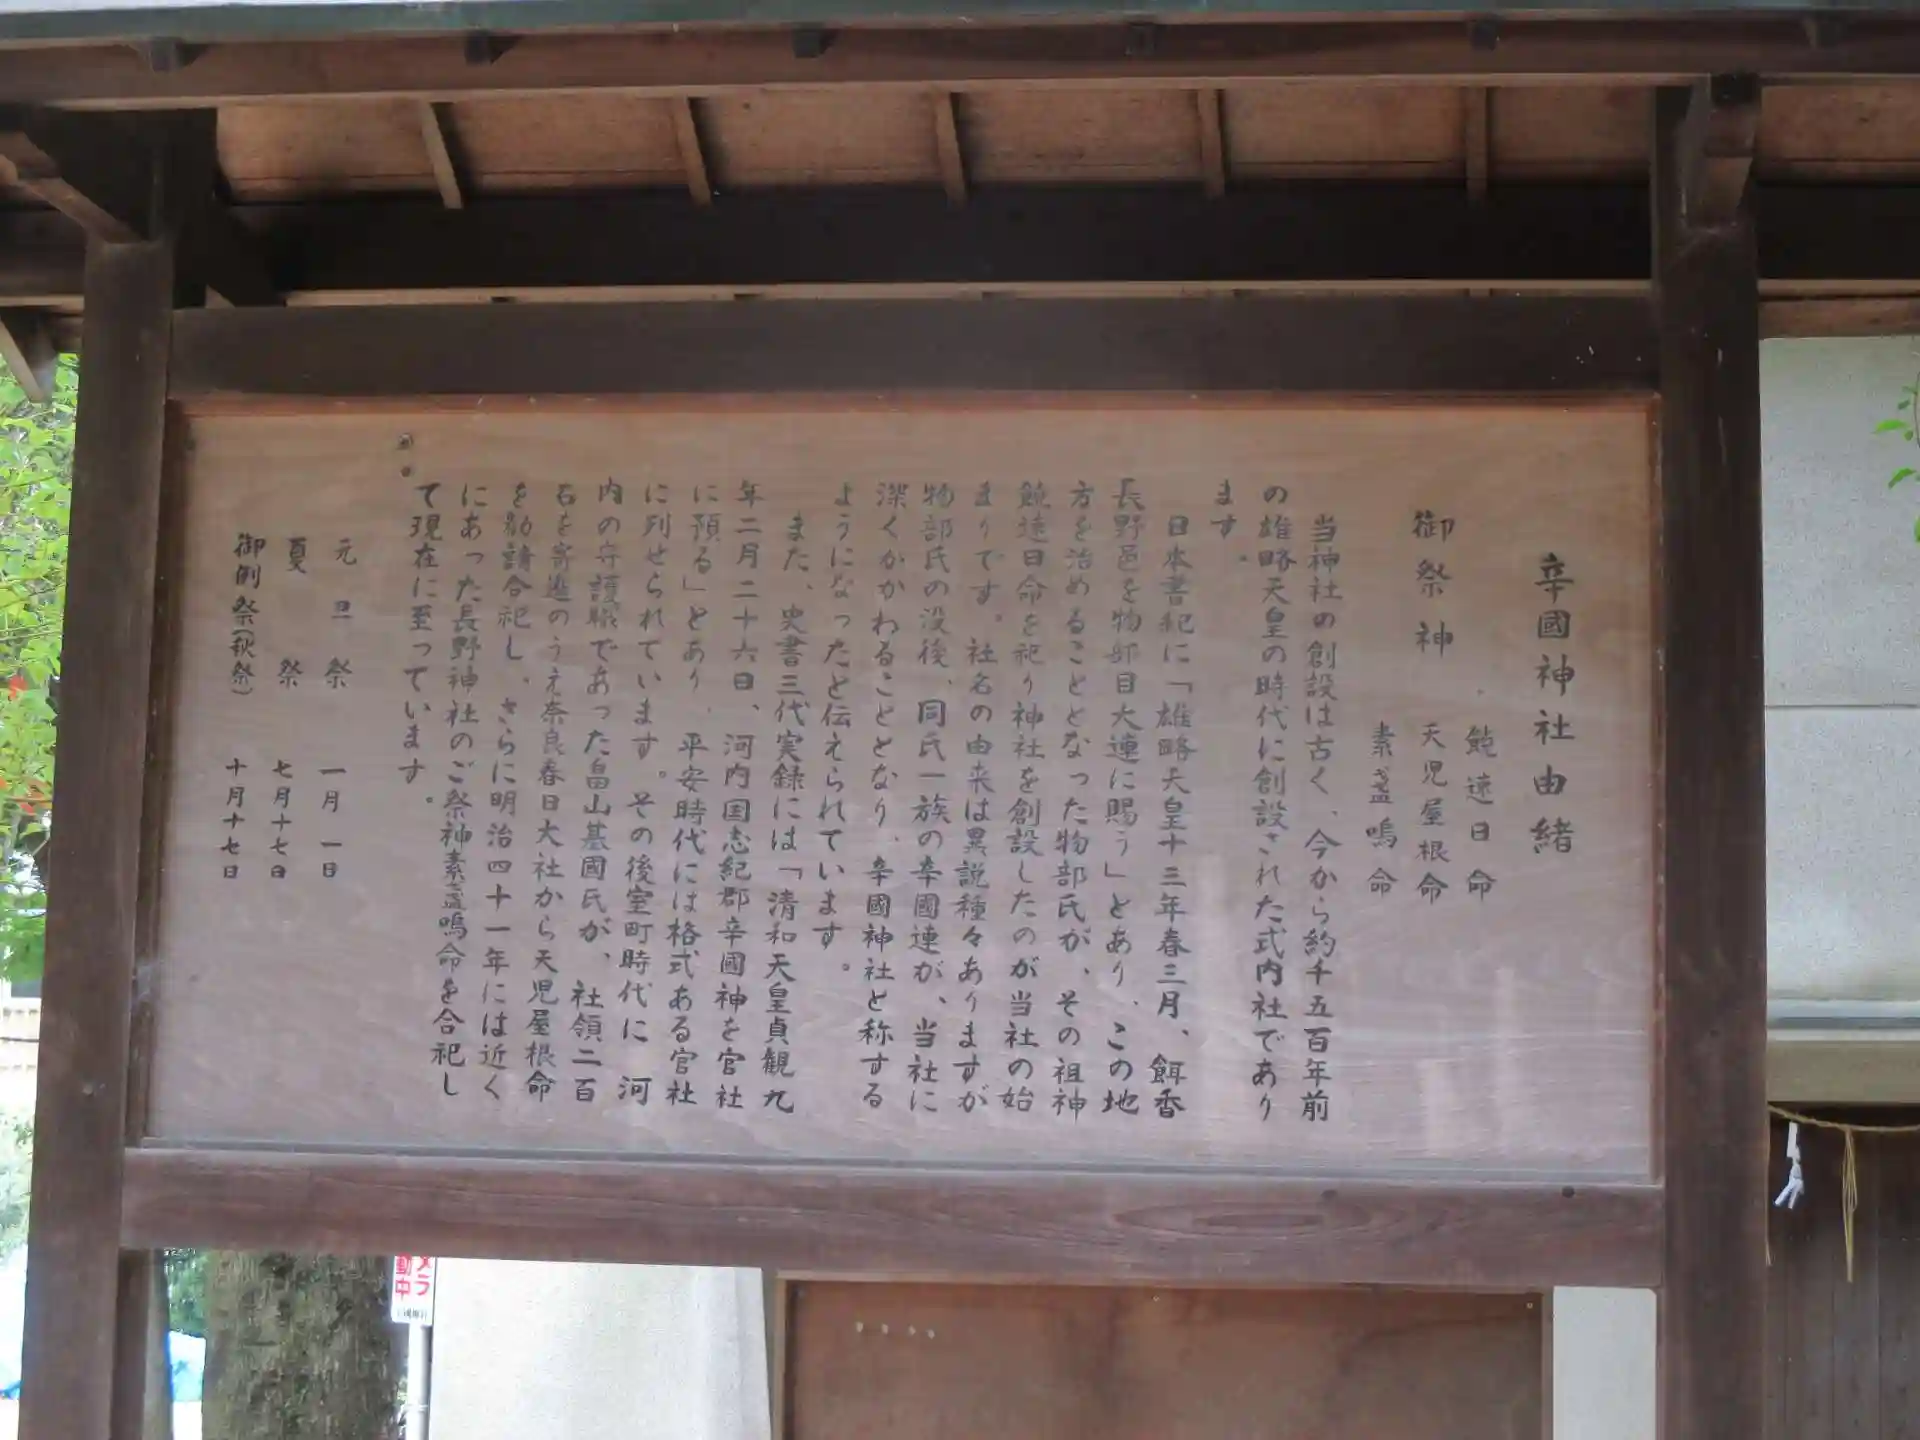 辛國神社由緒
饒速日命
御祭神 天児屋根命
素盞嗚命
当神社の創設は古く、今から約千五百年前
の雄略天皇の時代に創設された式内社であり
ます。
日本書紀に「雄略天皇十三年春三月、餌香
長野邑を物部目大連に賜う」とあり、この地
方を治めることとなった物部氏が、その祖神
饒速日命を祀り神社を創設したのが当社の始
まりです。社名の由来は異説種々ありますが
物部氏の没後、同氏一族の辛國連が、当社に
深くかかわることとなり、辛國神社と称する
ようになったと伝えられています。
また、史書三代実録には「清和天皇貞観九
年二月二十六日、河内国志紀郡辛國神を官社
に預る」とあり、平安時代には格式ある官社
に列せられています。その後室町時代に河
内の守護職であった畠山基國氏が、社領二百
石を寄進のうえ奈良春日大社から天児屋根命
を勧請合祀し、さらに明治四十一年には近く
にあった長野神社のご祭神素盞嗚命を合祀し
て現在に至っています。
元旦祭 一月一日
夏祭 七月十七日
御例祭(秋祭) 十月十七日
メラ
動中